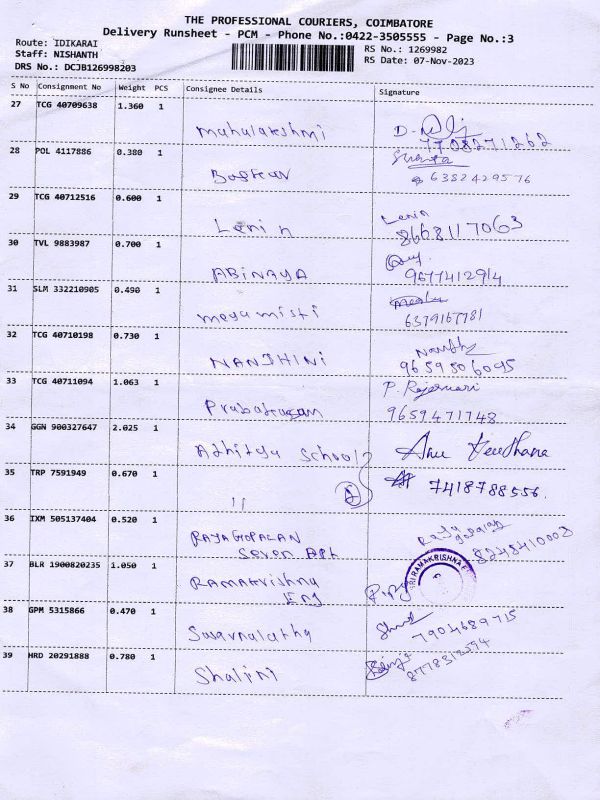 THE PROFESSIONAL COURIERS, COIMBATORE
Delivery Runsheet - PCM - Phone No.:0422-3505555 - Page No.:3
Route: IDIKARAI
RS No.: 1269982
Staff: NISHANTH
RS Date: 07-Nov-2023
DRS No.: DCJB126998203
S No Consignment No Weight PCS Consignee Details Signature
27 TCG 40709638 1.360 1
Mahalakshmi
7708271262
28 POL 4117886 0.380 1
Baskar
6382429576
29 TCG 40712516 0.600 1
Lenin Lenin
8668117063
30 TVL 9883987 0.700 1
ABINAYA 9677412914
31 SLM 332210905 0.490 1
megamisti 6379167781
32 TCG 40710198 0.730 1
NANDHINI 9659506095
33 TCG 40711094 1.063 1
Prabakaran 9659471748
34 GGN 900327647 2.025 1
Adhitya School
35 TRP 7591949 0.670 1
" 7418788556.
36 IXM 505137404 0.520 1
RAJAGOPALAN
Seven Apt 8248410003
37 BLR 1900820235 1.050 1
Ramakrishna SRI RAMAKRISHNA
Eng
38 GPM 5315866 0.470 1
Swarnalatha 7904689715
39 HRD 20291888 0.780 1
Shalini